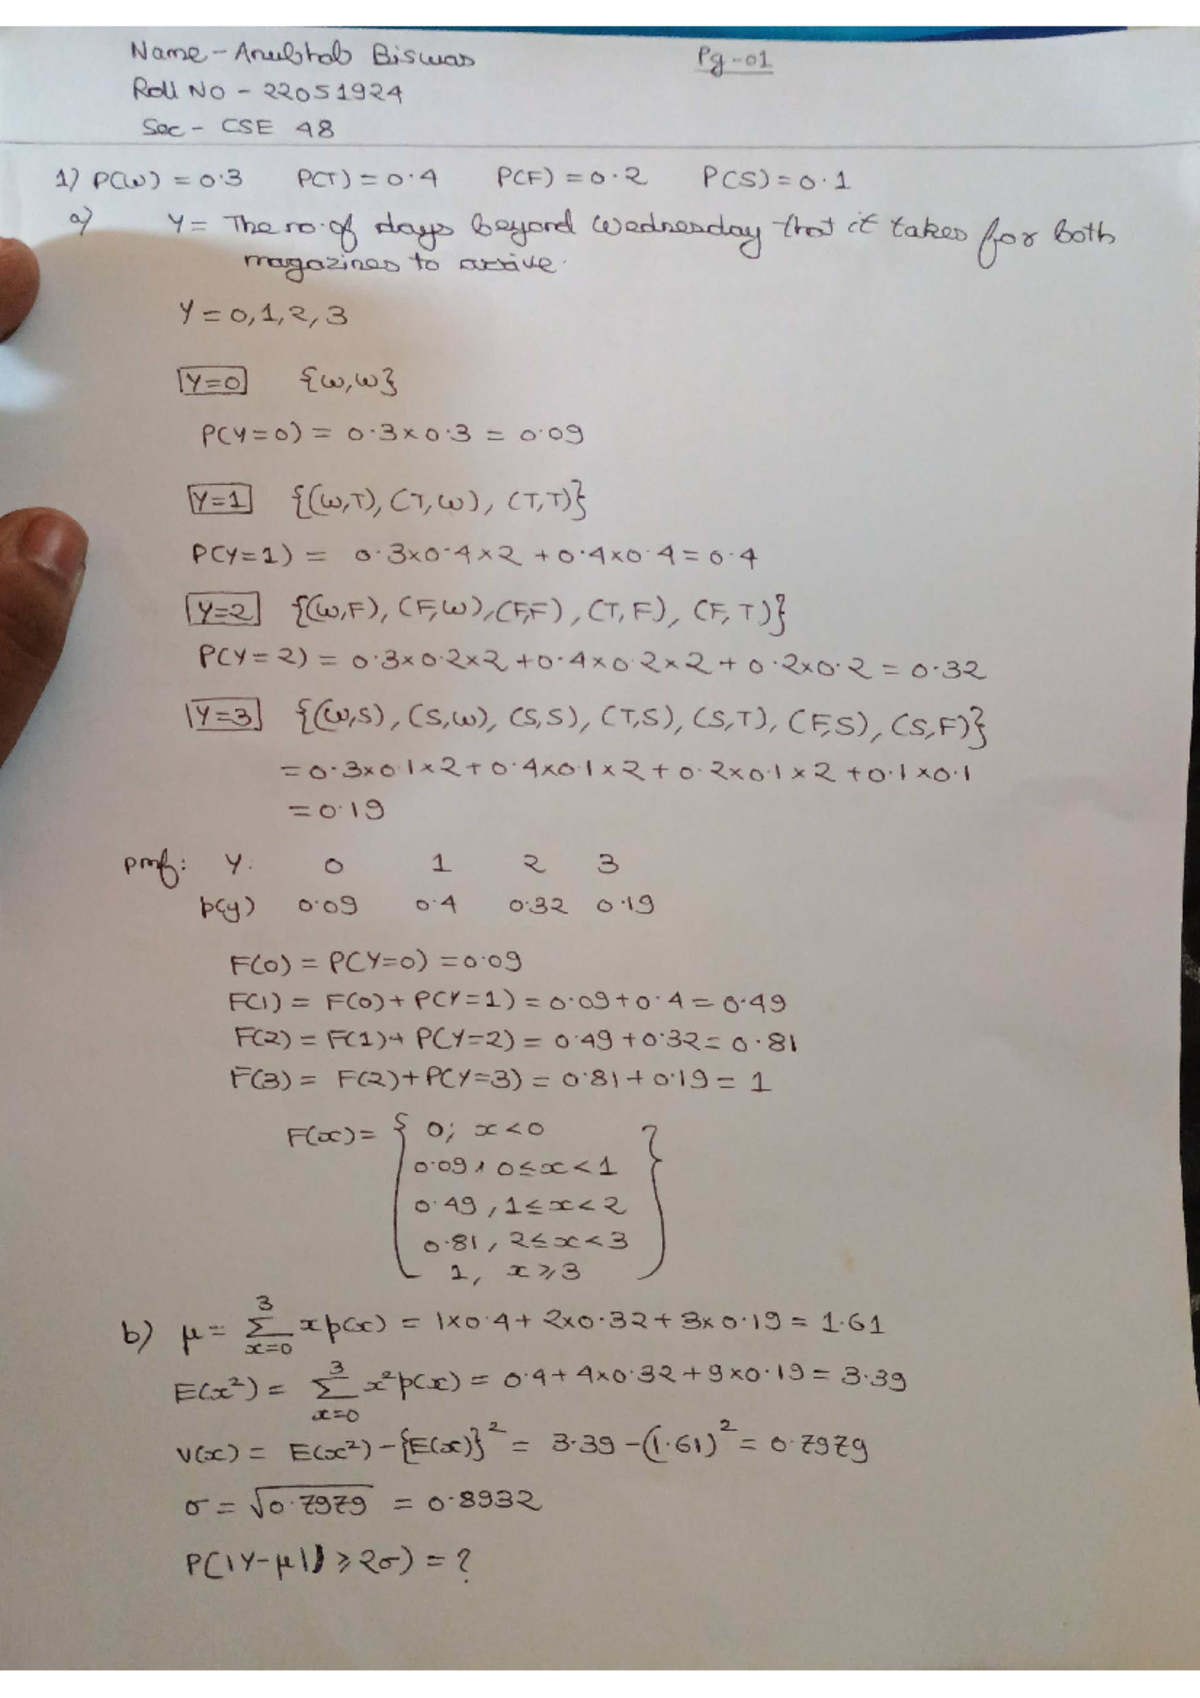 Name - Anubhab Biswas
Pg-01
Roll No - 22051924
Sec - CSE 48
1) P(W) = 0.3 P(T) = 0.4 P(F) = 0.2 P(S) = 0.1
a) Y = The no. of days beyond Wednesday that it takes for both
magazines to arrive.
Y = 0, 1, 2, 3
Y=0 {W,W}
P(Y=0) = 0.3×0.3 = 0.09
Y=1 {(W,T), (T,W), (T,T)}
P(Y=1) = 0.3×0.4×2 + 0.4×0.4 = 0.4
Y=2 {(W,F), (F,W), (F,F), (T,F), (F,T)}
P(Y=2) = 0.3×0.2×2 + 0.4×0.2×2 + 0.2×0.2 = 0.32
Y=3 {(W,S), (S,W), (S,S), (T,S), (S,T), (F,S), (S,F)}
= 0.3×0.1×2 + 0.4×0.1×2 + 0.2×0.1×2 + 0.1×0.1
= 0.19
pmf: Y. 0 1 2 3
p(y) 0.09 0.4 0.32 0.19
F(0) = P(Y=0) = 0.09
F(1) = F(0) + P(Y=1) = 0.09 + 0.4 = 0.49
F(2) = F(1) + P(Y=2) = 0.49 + 0.32 = 0.81
F(3) = F(2) + P(Y=3) = 0.81 + 0.19 = 1
F(x) = { 0; x<0
0.09, 0≤x<1
0.49, 1≤x<2
0.81, 2≤x<3
1, x≥3 }
b) μ = Σ³ₓ₌₀ x p(x) = 1×0.4 + 2×0.32 + 3×0.19 = 1.61
E(x²) = Σ³ₓ₌₀ x²p(x) = 0.4 + 4×0.32 + 9×0.19 = 3.39
V(x) = E(x²) - {E(x)}² = 3.39 - (1.61)² = 0.7979
σ = √0.7979 = 0.8932
P(|Y-μ| ≥ 2σ) = ?